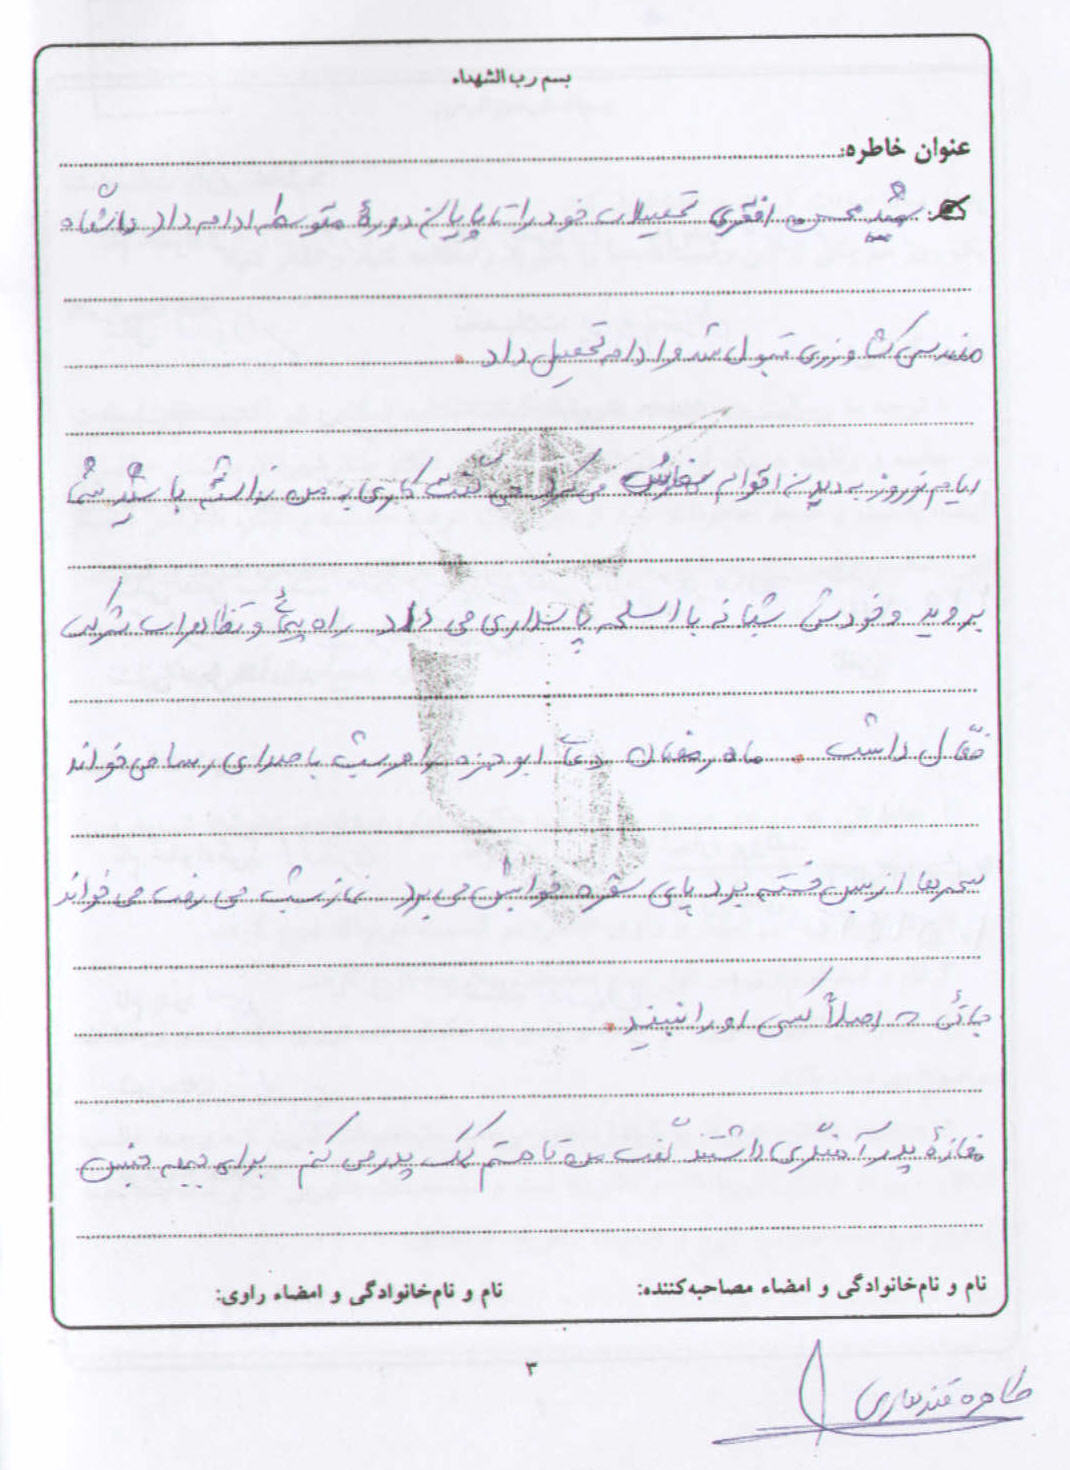 بسم رب الشهداء
عنوان خاطره:
شهید محسن افقری تحصیلات خود را تا پایان دورۀ متوسطه ادامه داد دانشگاه
مهندسی کشاورزی قبول شد و ادامه تحصیل داد.
ایام نوروز به دیدن اقوام سفارش می کرد می گفت کاری به من نداشته باشید شما
بروید و خودش شبانه با اسلحه پاسداری می داد راه پیمائی و تظاهرات شرکت
فعّال داشت. ماه رمضان دعای ابوحمزه را هر شب با صدای رسا می خواند
سحرها از بس خسته بود پای سفره خوابش می برد نماز شب می رفت می خواند
جائی که اصلاً کسی او را نبیند.
مغازۀ پدر آهنگری داشتند گفت من تا هستم کمک پدر می کنم برای جبهه جنس
نام و نام‌خانوادگی و امضاء مصاحبه‌کننده:
نام و نام‌خانوادگی و امضاء راوی:
۳
طاهره قندهاری